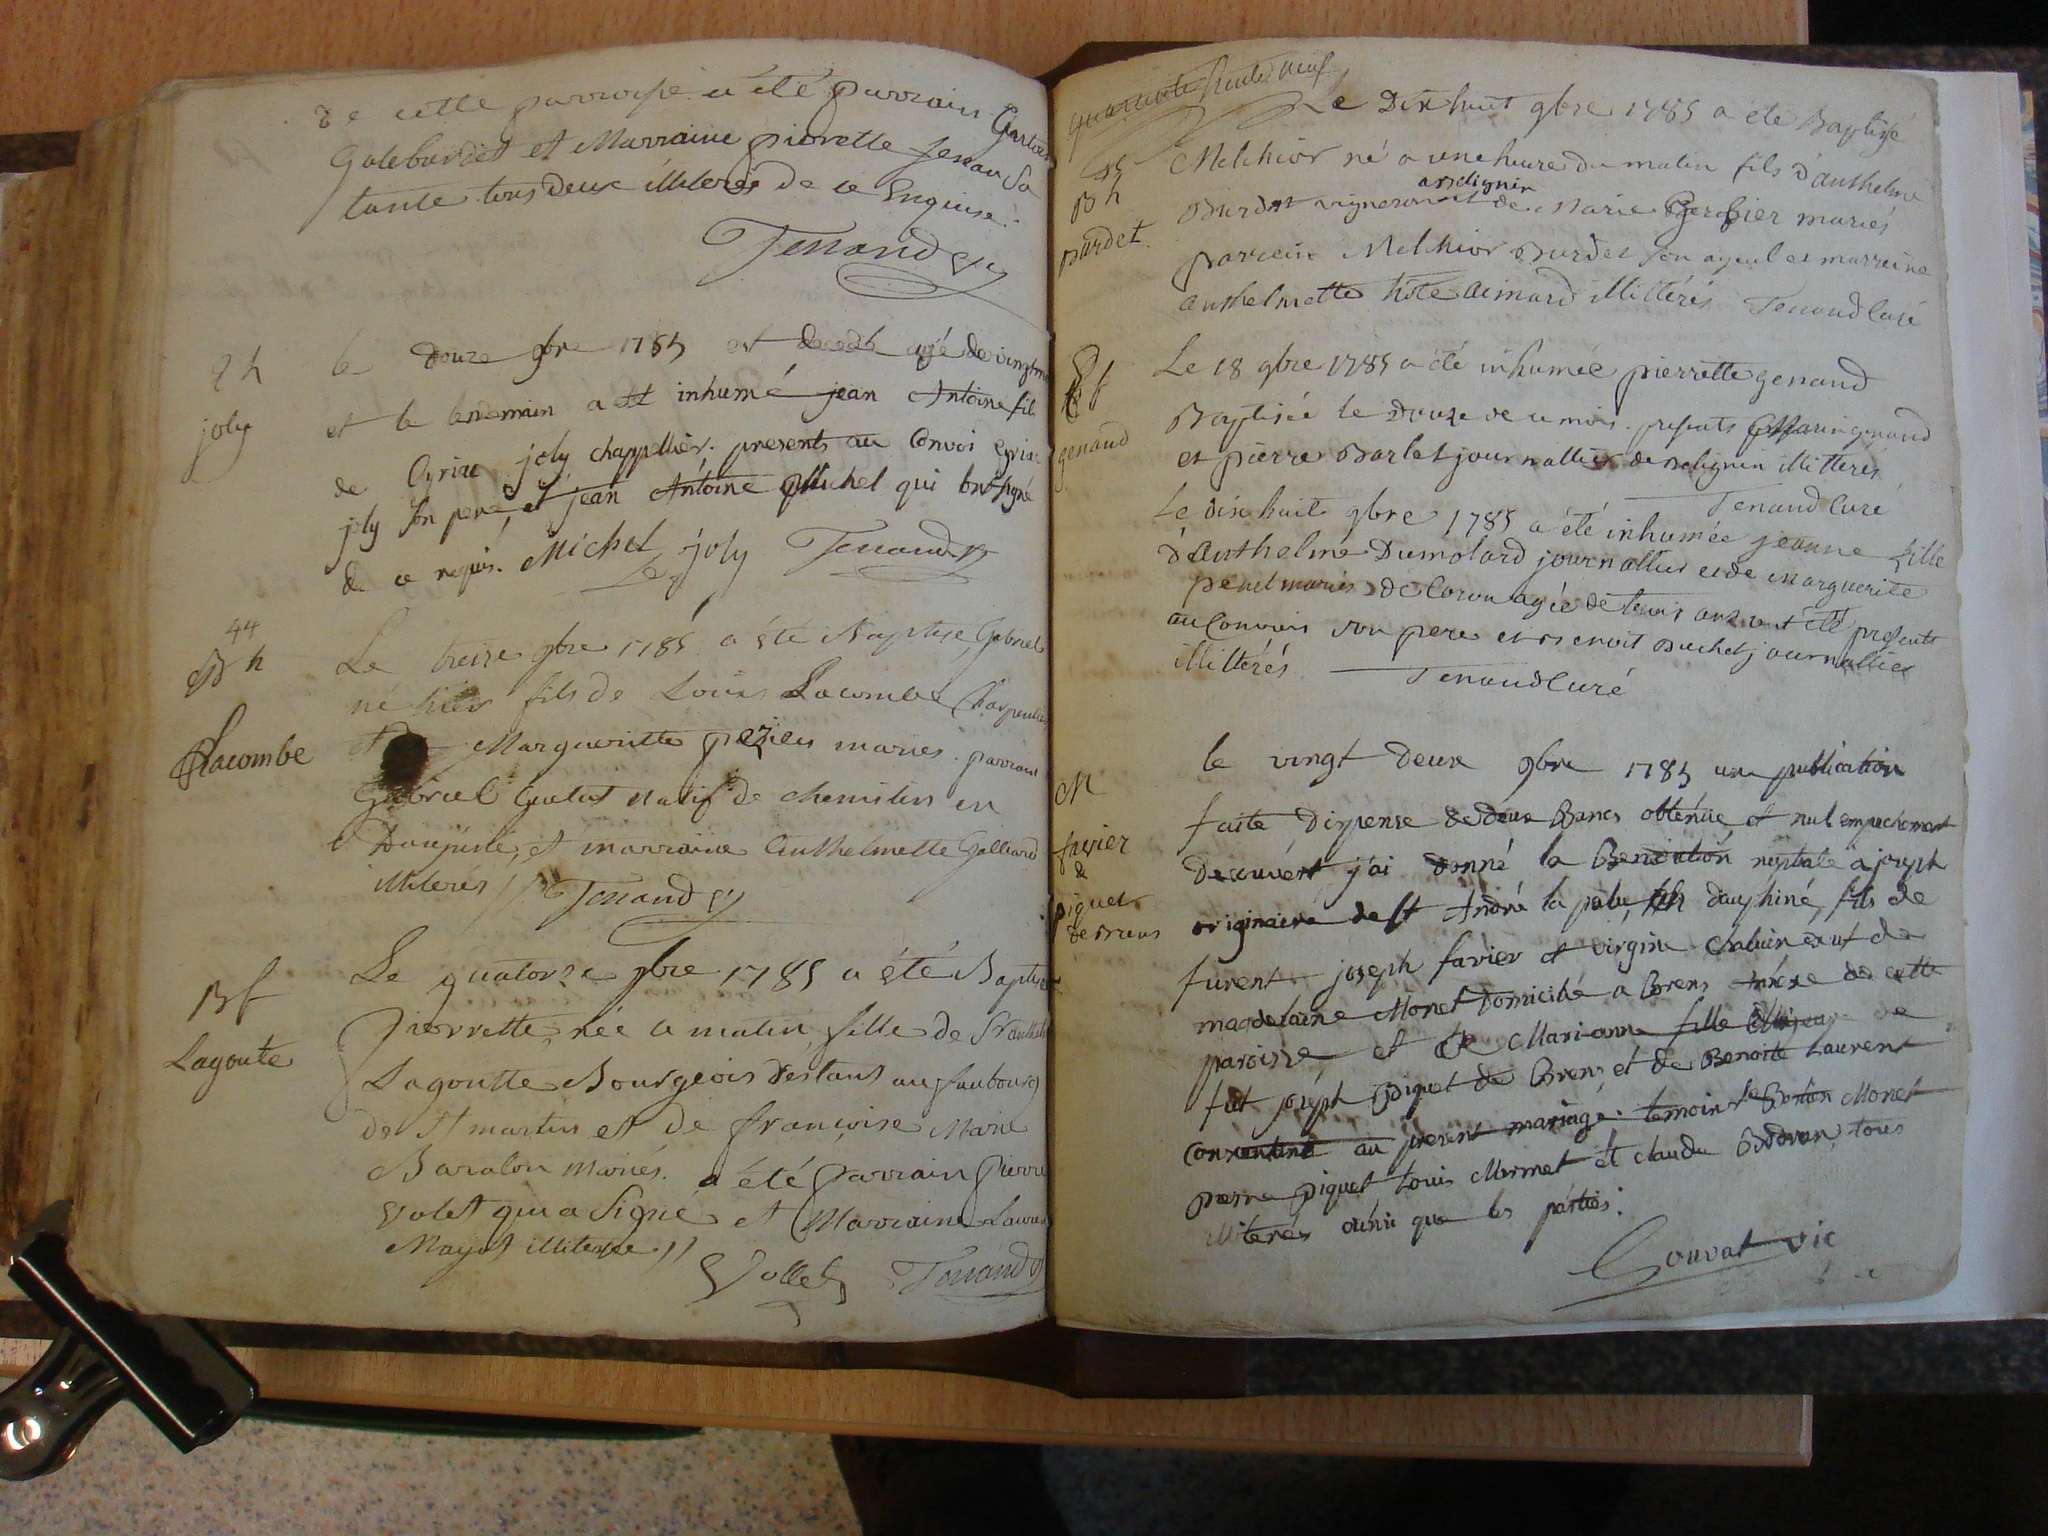 de cette parroisse a été parrain
et Marraine pierrette Sa
tante tous deux illiterés de ce Enquis.
Tenand
9 h
joly
le douze 9bre 1785 est decedé agé de vingt
et le lendemain a ett inhumé jean Antoine fils
de Cyriac joly chappellier. presents au Convoi Cyriac
joly Son pere, et jean Antoine Michel qui ont signé
de ce requis. Michel joly Tenand
44
B h
Lacombe
Le treize 9bre 1785 a été Baptisé Gabriel
né hier fils de Louis Lacombe Charpentier
et Margueritte mariés. parrain
Gabriel natif de en
et marraine Anthelmette
illiterés // Tenand
B f
Lagoute
Le quatorze 9bre 1785 a été Baptisé
Pierrette, née ce matin, fille de
Lagoutte Bourgeois d'estant au faubourg
de St martin et de françoise Marie
Baralon mariés. a été Parrain Pierre
Volet qui a Signé et Marraine
illiterée //
Vollet Tenand
quarante huit neuf
B h
Burdet
Le Dix huit 9bre 1785 a été Baptisé
Melchior né a une heure du matin fils d'anthelme
ardignin
Burdet vigneron et de Marie mariés
parrein Melchior Burdet son ayeul et marreine
anthelmette aimard illittérés Tenand Curé
f
genand
Le 18 9bre 1785 a été inhumée pierrette genand
Baptisée le Douze de ce mois. presents genand
et pierre Barlet journallier de illitterés
Tenand Curé
Le dix huit 9bre 1785 a été inhumée jeanne fille
d'Anthelme Dumolard journallier et de marguerite
mariés de Coron agée de ans et été presents
au Convois son pere et Benoit Buchet journallier
illittérés Tenand Curé
M
favier
&
piguet
de Brens
le vingt deux 9bre 1785 une publication
faite dispense de deux Bancs obténüe et nul empechement
decouvert j'ai donné la Benediction nuptiale à joseph
originaire de St André la palu, dauphiné, fils de
furent joseph favier et virgine et veut de
magdelaine Monet domicilié a Brens Anexe de cette
paroisse et de Marianne fille Majeure de
fut joseph Piguet de Brens et de Benoite Laurent
consentent au present mariage. temoins Monet
pierre piguet Louis Mermet et claude tous
illiterés ainsi que les parties.
Gouvat vic